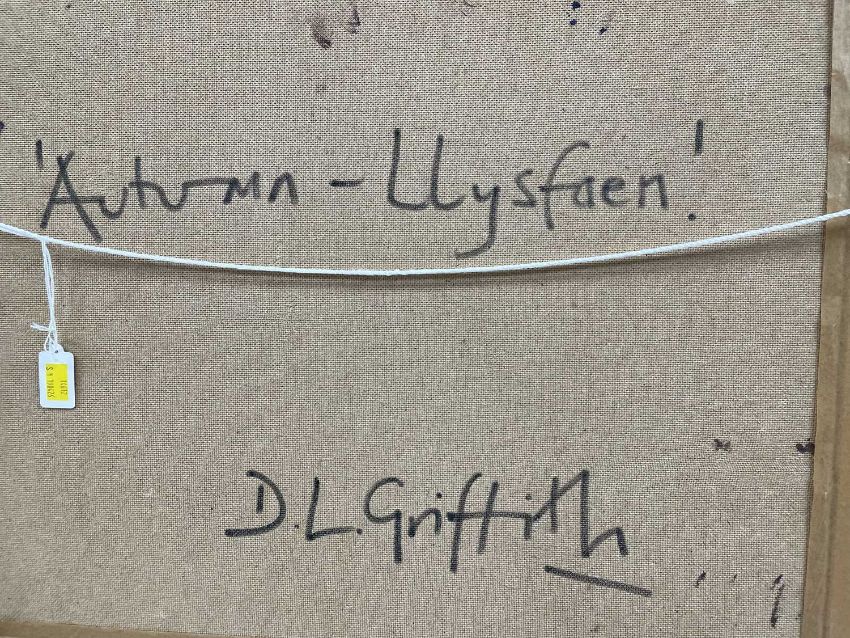 'Autumn - Llysfaen.'
D.L. Griffith